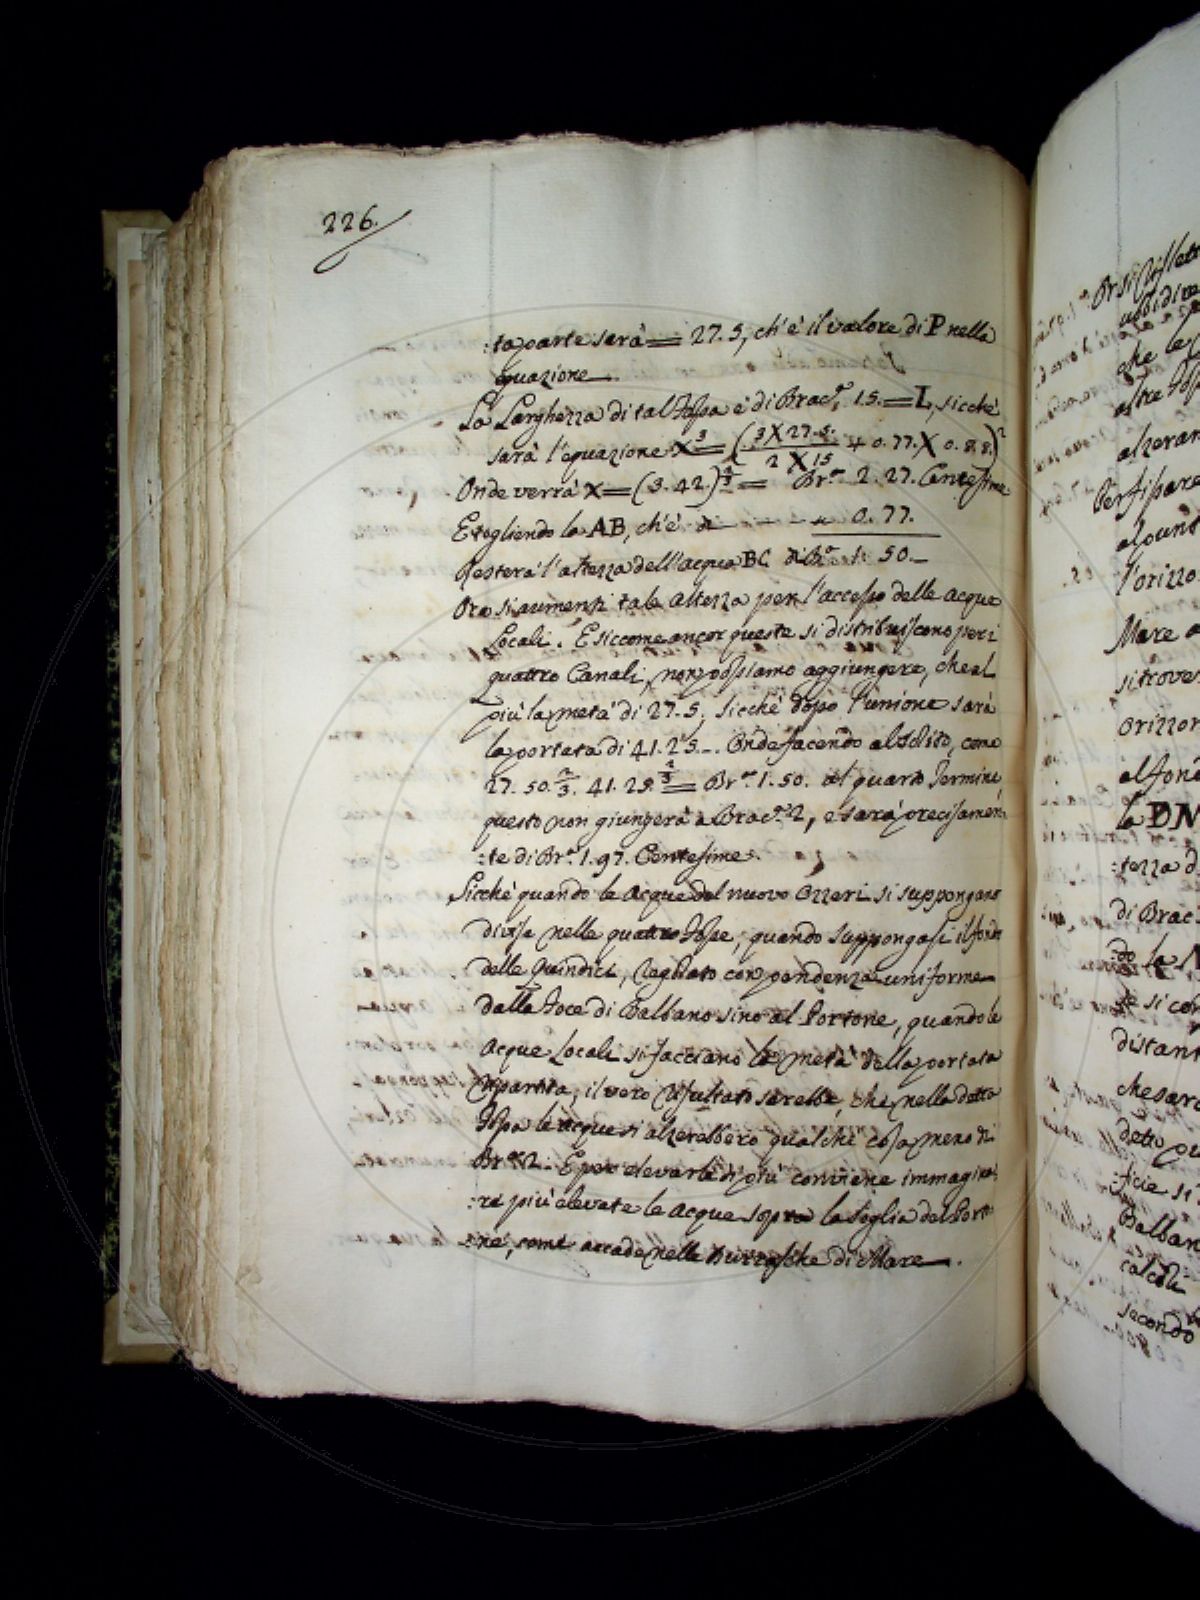 226.
:ta parte sarà = 27. 5, ch'è il valore di P nella
equazione.
La Larghezza di tal Fossa è di Brac.ª 15. = L, sicchè
sarà l'equazione X^3 = (3 X 27. 5. / 2 X 15 + 0. 77. X 0. 88.)^2
Onde verrà X = (3. 42.)^2/3 = Br.ª 2. 27. Centesime
E togliendo la AB, ch'è di - - - 0. 77.
Resterà l'altezza dell'acqua BC di Br.ª 1. 50.
Ora si aumenti tale altezza per l'accesso delle acque
Locali. E siccome ancor queste si distribuiscono per i
quattro Canali, non possiamo aggiungere, che al
più la metà di 27. 5, sicchè dopo l'unione sarà
la portata di 41. 25. Onde facendo al solito, come
27. 50. 2/3. 41. 25. 2/3 = Br.ª 1. 50. al quarto Termine
questo non giungerà a Brac.ª 2, e sarà precisamen:
:te di Br.ª 1. 97. Centesime.
Sicchè quando le Acque del nuovo Ozzeri si suppongano
divise nelle quattro Fosse, quando suppongasi il fondo
delle Quindici, regolato con pendenza uniforme
dalla Foce di Balbano sino al Portone, quando le
Acque Locali si facciano la metà della portata
ripartita, il vero resultato sarebbe, che nella detta
Fossa le acque si alzerebbero qualche cosa meno di
Br.ª 2. E per elevarle di più conviene immagina:
:re più elevate le acque sopra la soglia del Porto:
:ne, come accade nelle burrasche di Mare.
Or si riflett
ubbidire
che la
altre Foss
alzeran
Per fissare
alcuns
l'orizzo
Mare a
si trover
orizzon
al fond
la DN
:tezza d
di Brac.
:do la N
se si con
distant
che sarà
detto qu
:ficie si
Balban
calcoli
secondo